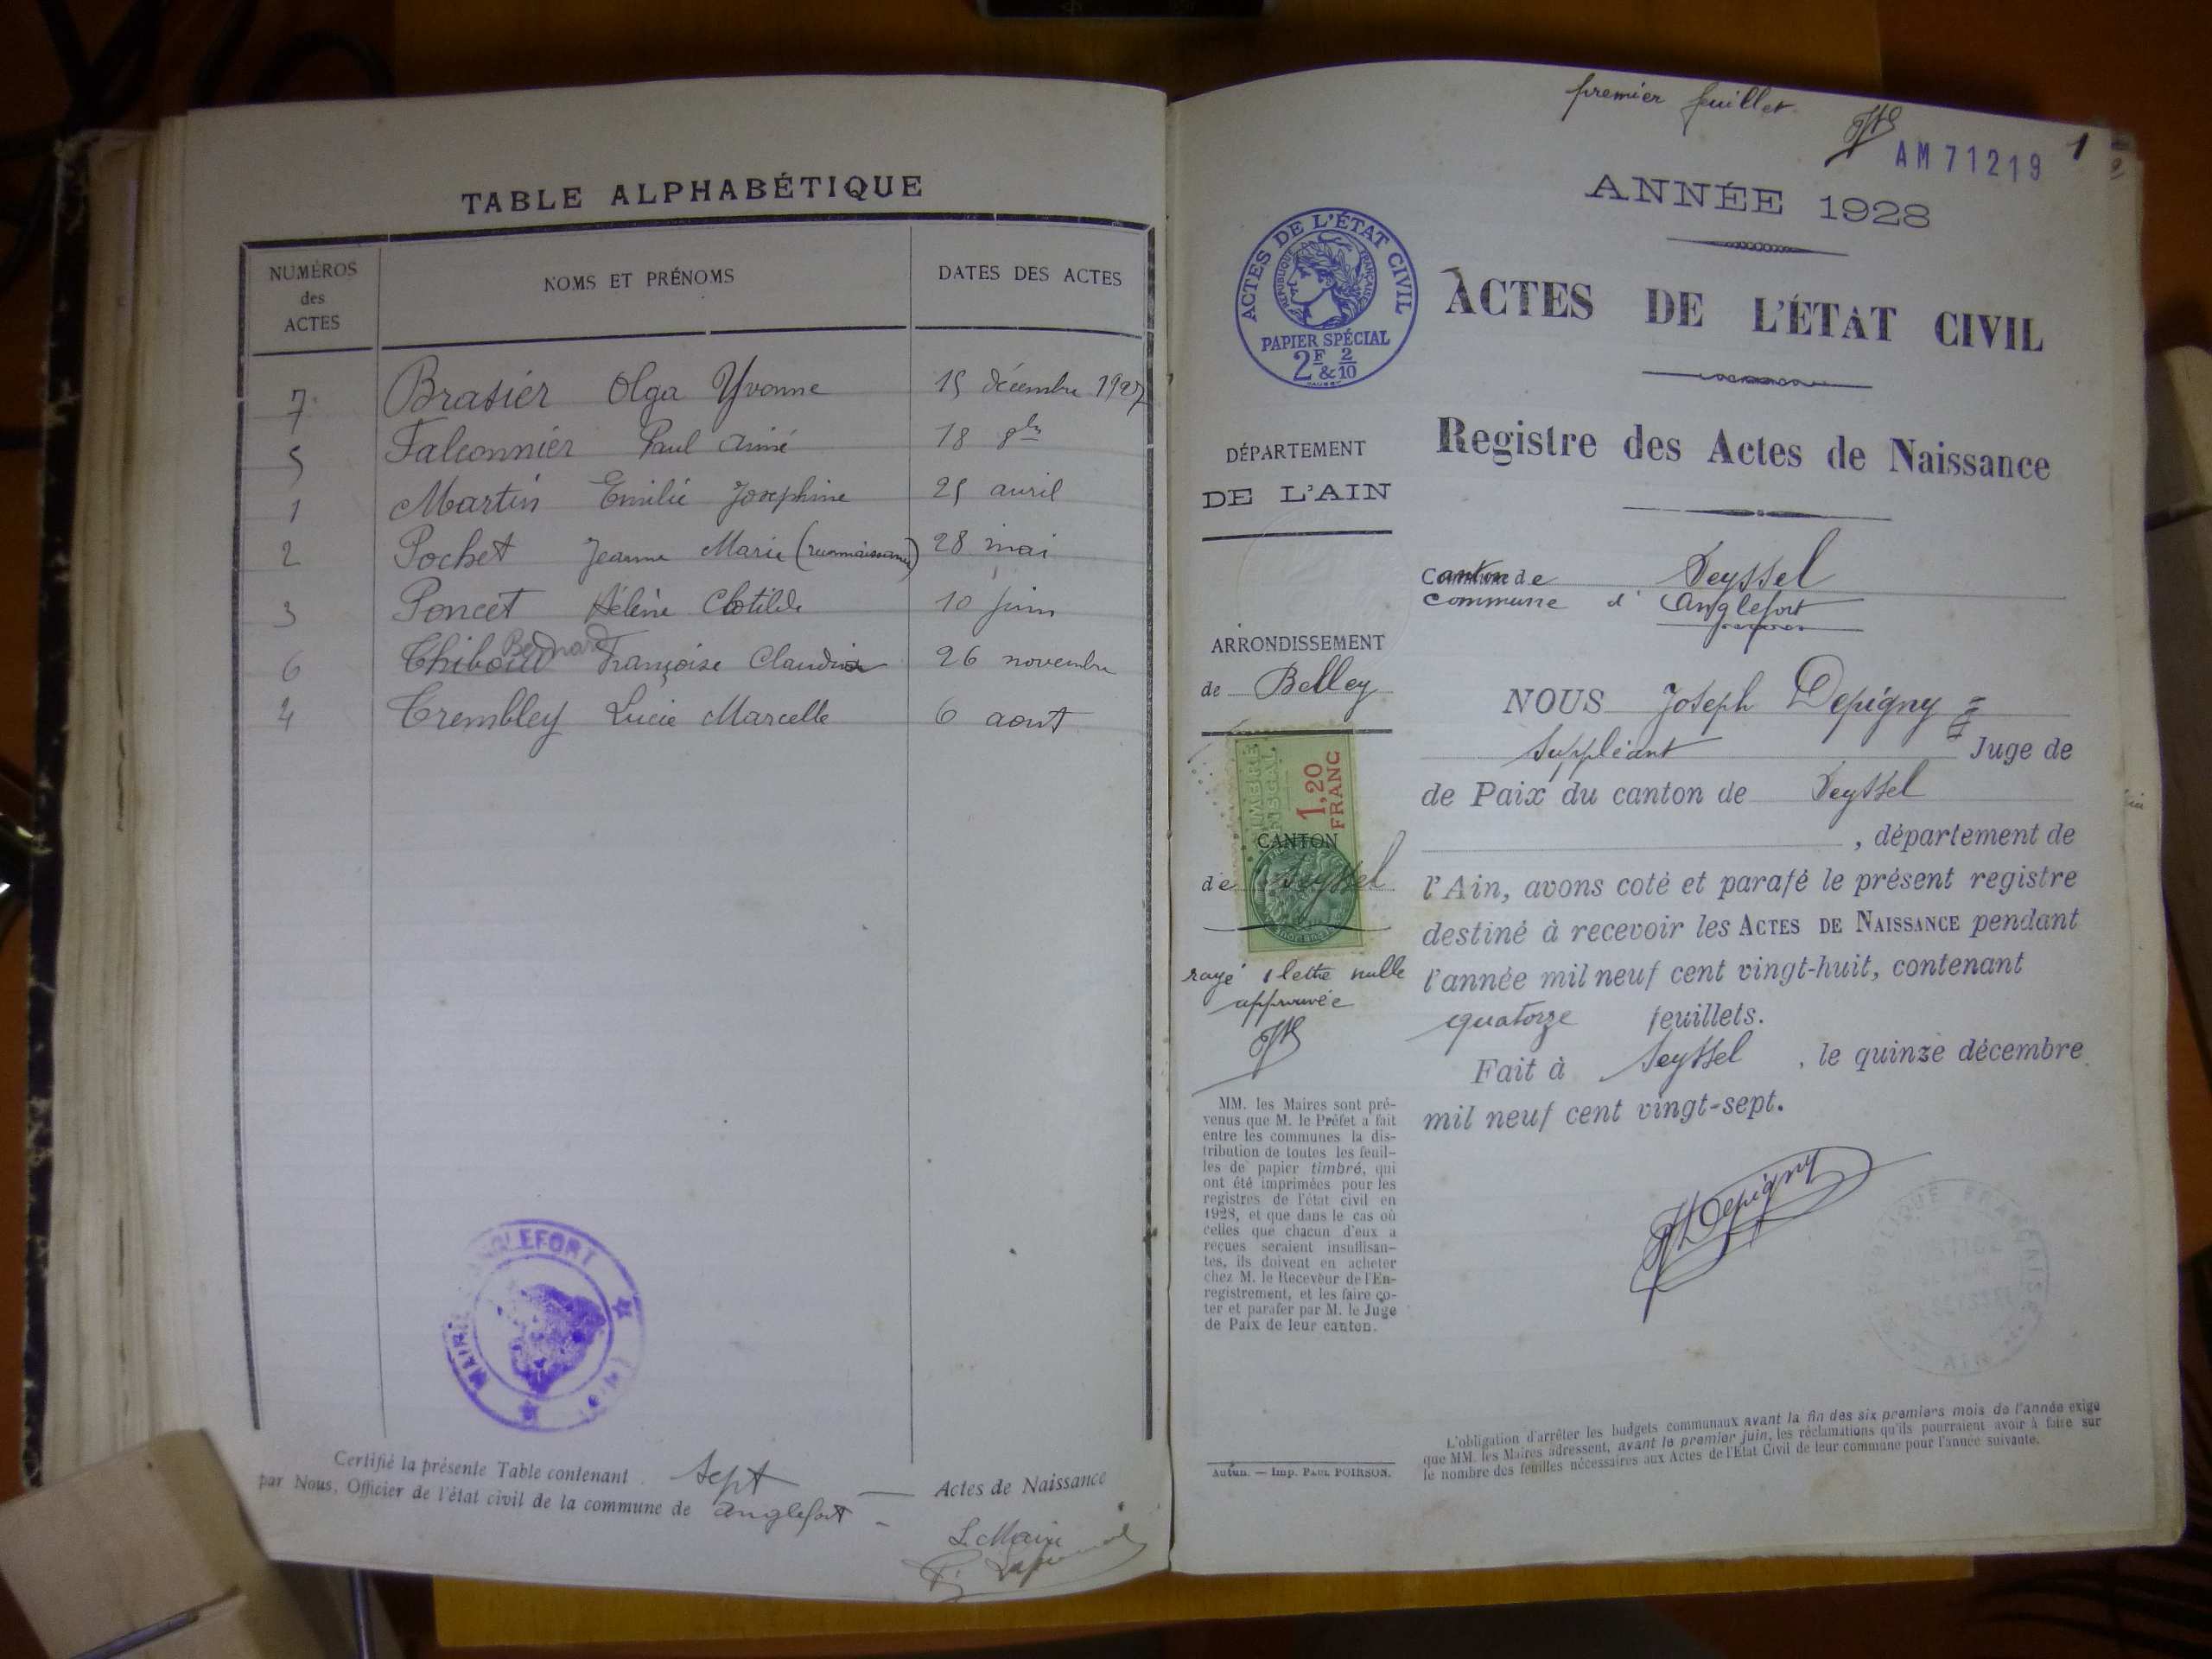 TABLE ALPHABÉTIQUE
NUMÉROS des ACTES NOMS ET PRÉNOMS DATES DES ACTES
7 Brasier Olga Yvonne 15 décembre 1927
5 Falconnier Paul Aimé 18 8bre
1 Martin Emilie Joséphine 25 avril
2 Pochet Jeanne Marie (reconnaissance) 28 mai
3 Poncet Hélène Clotilde 10 juin
Bernard
6 Thiboud Françoise Claudia 26 novembre
4 Trembley Lucie Marcelle 6 aout
MAIRIE ANGLEFORT
Certifié la présente Table contenant sept Actes de Naissance
par Nous, Officier de l'état civil de la commune de Anglefort
Le Maire
premier feuillet
AM 71219 1
ANNÉE 1928
ACTES DE L'ÉTAT CIVIL
RÉPUBLIQUE FRANÇAISE
PAPIER SPÉCIAL
2F & 2/10
ACTES DE L'ÉTAT CIVIL
Registre des Actes de Naissance
DÉPARTEMENT
DE L'AIN
Canton de Seyssel
Commune d' Anglefort
ARRONDISSEMENT
de Belley
NOUS Joseph Depigny
Suppléant Juge de
de Paix du canton de Seyssel
, département de
l'Ain, avons coté et parafé le présent registre
destiné à recevoir les ACTES DE NAISSANCE pendant
l'année mil neuf cent vingt-huit, contenant
quatorze feuillets.
Fait à Seyssel , le quinze décembre
mil neuf cent vingt-sept.
TIMBRE FISCAL
1,20 FRANC
CANTON
de Seyssel
rayé 1 lettre nulle
approuvée
MM. les Maires sont pré-
venus que M. le Préfet a fait
entre les communes la dis-
tribution de toutes les feuil-
les de papier timbré, qui
ont été imprimées pour les
registres de l'état civil en
1928, et que dans le cas où
celles que chacun d'eux a
reçues seraient insuffisan-
tes, ils doivent en acheter
chez M. le Receveur de l'En-
registrement, et les faire co-
ter et parafer par M. le Juge
de Paix de leur canton.
Depigny
RÉPUBLIQUE FRANÇAISE
AIN
Autun. — Imp. PAUL POIRSON.
L'obligation d'arrêter les budgets communaux avant la fin des six premiers mois de l'année exige
que MM. les Maires adressent, avant le premier juin, les réclamations qu'ils pourraient avoir à faire sur
le nombre des feuilles nécessaires aux Actes de l'État Civil de leur commune pour l'année suivante.